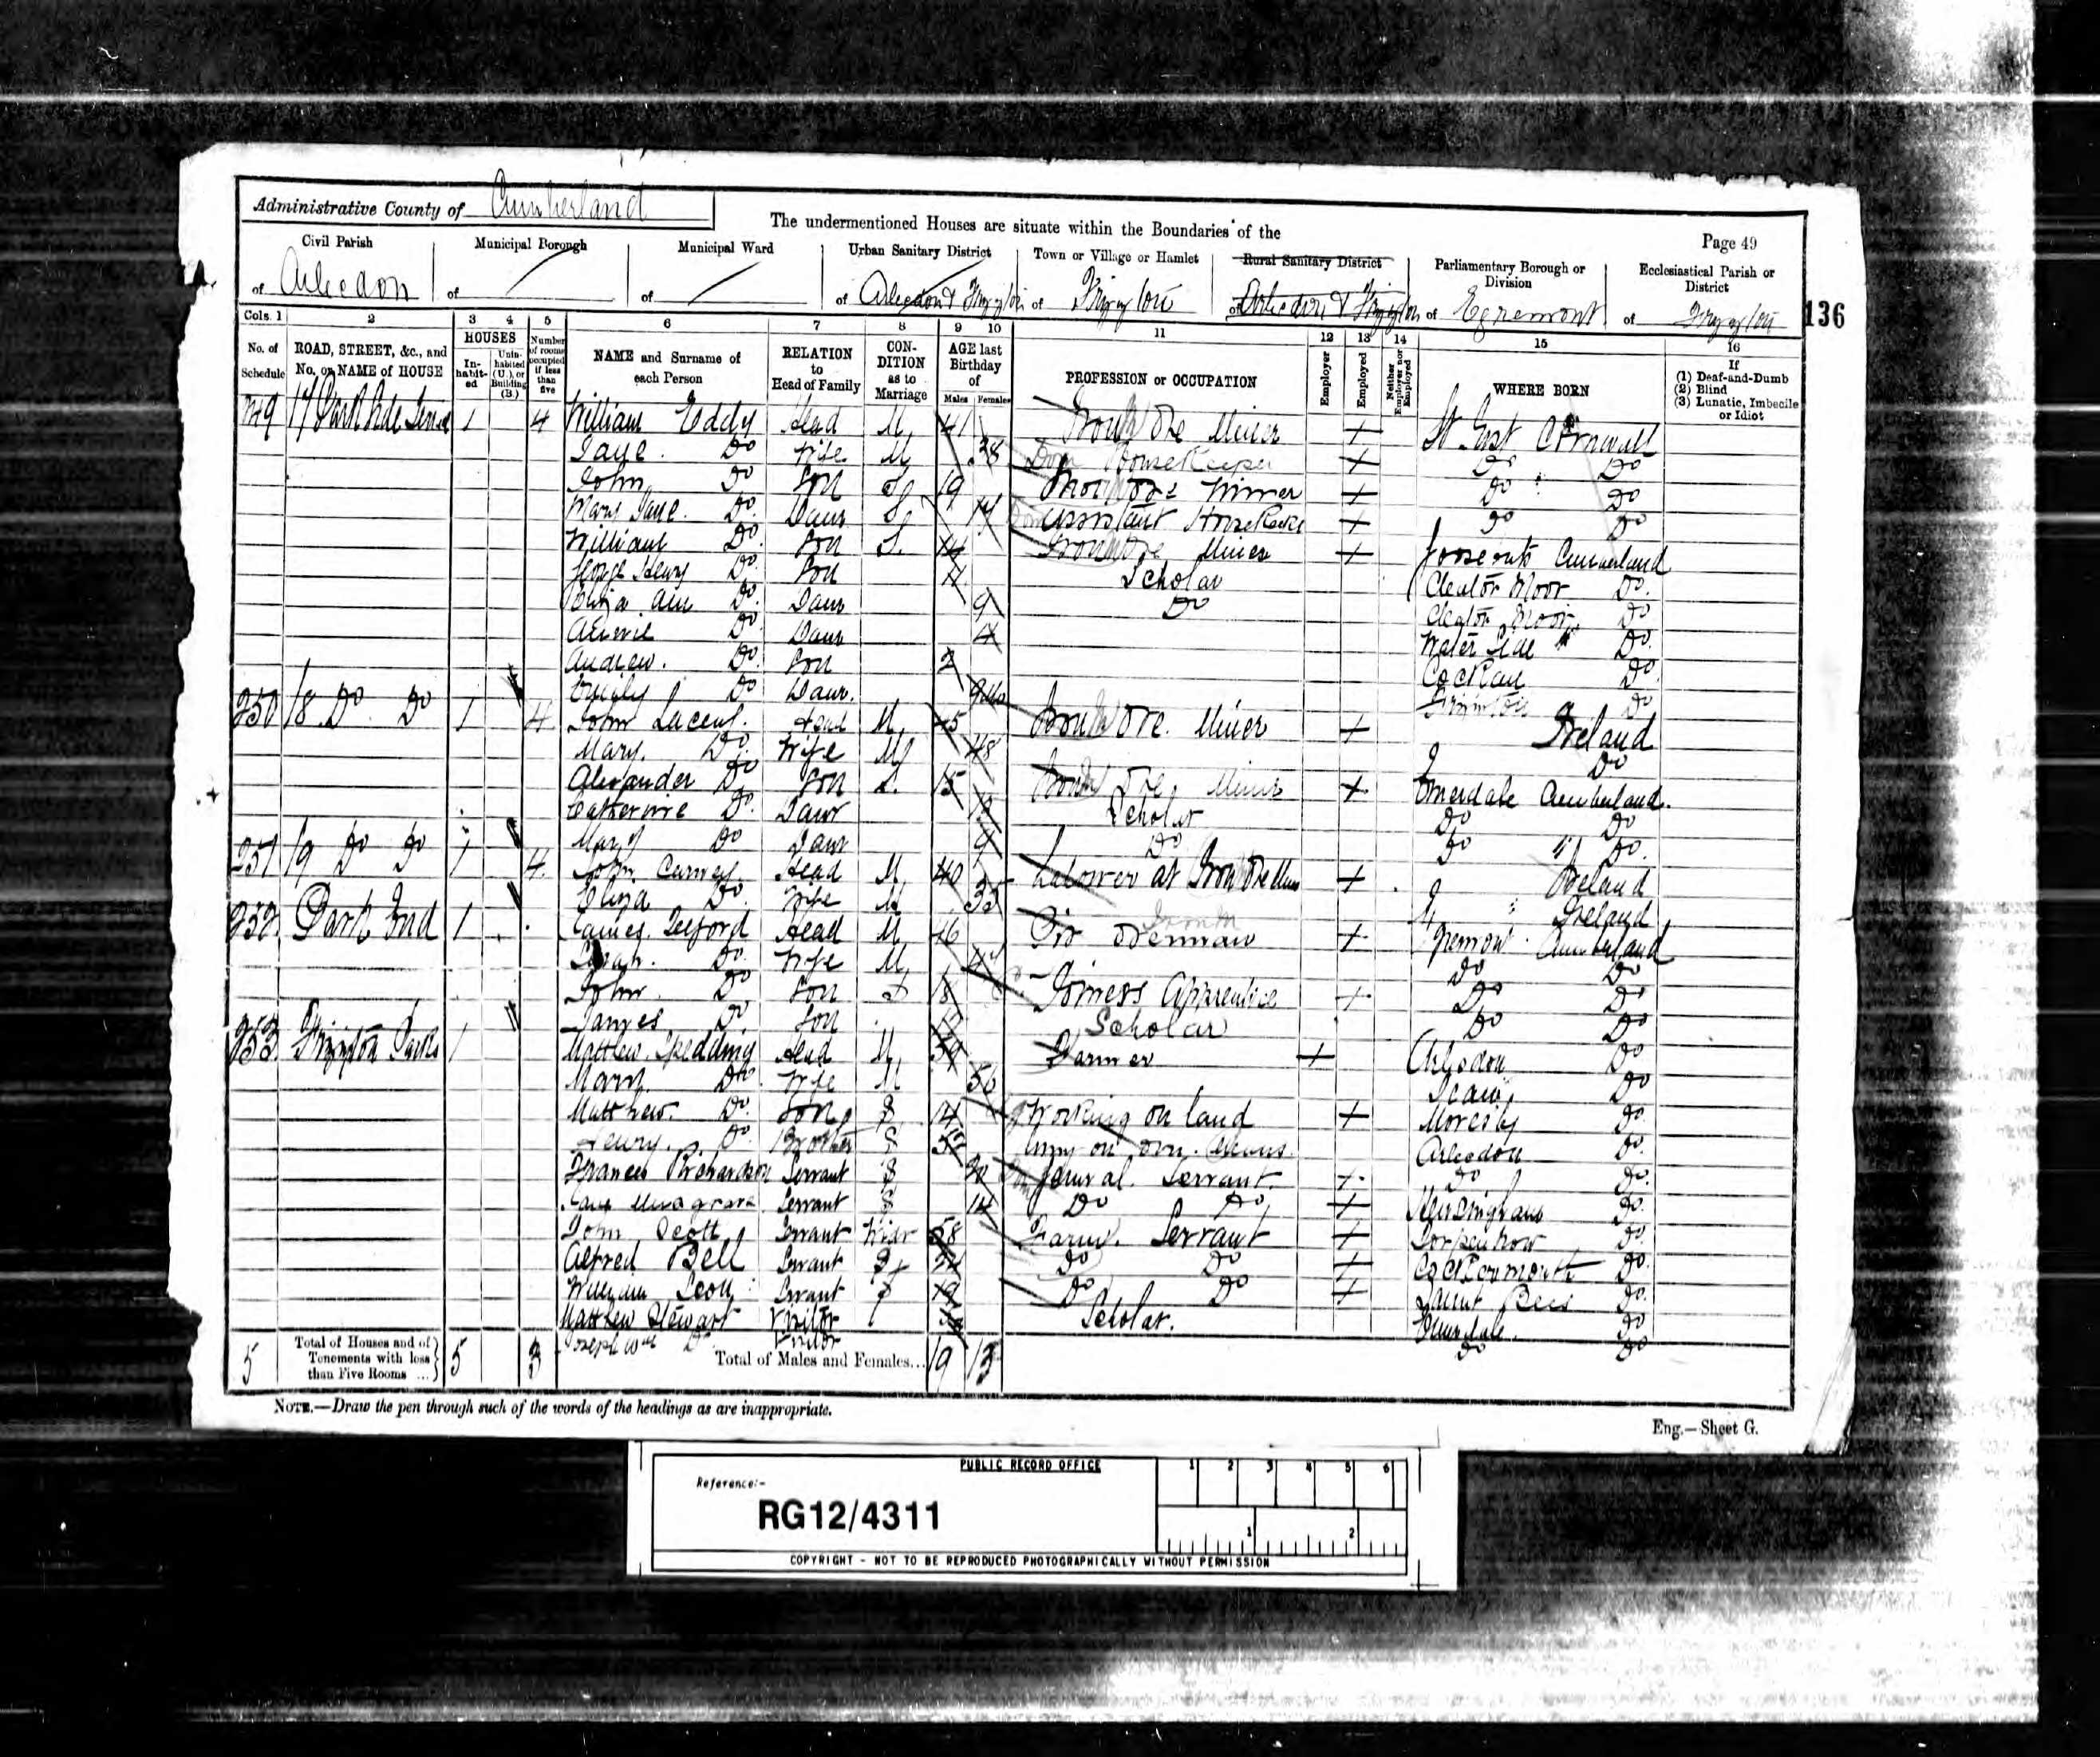 Administrative County of Cumberland
The undermentioned Houses are situate within the Boundaries of the
Page 49
Civil Parish of Arlecdon
Municipal Borough of
Municipal Ward of
Urban Sanitary District of Arlecdon & Frizington
Town or Village or Hamlet of Frizington
Rural Sanitary District of Arlecdon & Frizington
Parliamentary Borough or Division of Egremont
Ecclesiastical Parish or District of Frizington
136
Cols. 1 2 3 4 5 6 7 8 9 10 11 12 13 14 15 16
No. of Schedule
ROAD, STREET, &c., and No. or NAME of HOUSE
HOUSES
In-habit-ed
Unin-habited (U.), or Building (B.)
Number of rooms occupied if less than five
NAME and Surname of each Person
RELATION to Head of Family
CON-DITION as to Marriage
AGE last Birthday of
Males Females
PROFESSION or OCCUPATION
Employer
Employed
Neither Employer nor Employed
WHERE BORN
If
(1) Deaf-and-Dumb
(2) Blind
(3) Lunatic, Imbecile or Idiot
249 17 Park Side 1 4 William Eddy Head M 41 Iron Ore Miner + St Just Cornwall
Jane Do Wife M 38 Housekeeper + Do Do
John Do Son S 19 Iron Ore Miner + Do Do
Mary Jane Do Daur S 17 Assistant + Do Do
William Do Son S 14 Iron Ore Miner + Cumberland
George Henry Do Son 11 Scholar Cleator Moor Do
Ann Do Daur 9 Do Cleator Moor Do
Do Daur 4 Water Side Do
Andrew Do Son 2 Do
Emily Do Daur 9 Mo Do
250 18 Do Do 1 4 John Head M 45 Iron Ore Miner + Ireland
Mary Do Wife M 48 Do
Alexander Do Son S 15 Iron Ore Miner + Cumberland
Catherine Do Daur Scholar Do Do
Mary Do Daur 9 Do Do Do
251 19 Do Do 1 4 John Head M 40 Labourer at Iron Ore + Ireland
Eliza Do Wife M 35 Ireland
252 Park End 1 James Telford Head M 46 + Egremont Cumberland
Sarah Do Wife M Do Do
John Do Son S 18 Joiners Apprentice + Do Do
James Do Son Scholar Do Do
253 Frizington Parks 1 Matthew Spedding Head M Farmer + Arlecdon Do
Mary Do Wife M 56 Do
Matthew Do Son S Working on land + Moresby Do
Henry Do Brother S Living on own Means Arlecdon Do
Frances Richardson Servant S 20 General Servant + Do Do
Jane Musgrave Servant S 14 Do Do + Do
John Scott Servant Widr 58 Farm Servant + Torpenhow Do
Alfred Bell Servant S Do Do + Cockermouth Do
William Scott Servant S 19 Do Do + Saint Bees Do
Matthew Stewart Visitor Scholar Do
Joseph Wm Do Visitor Do Do
5 Total of Houses and of Tenements with less than Five Rooms ... 5 3 Total of Males and Females... 19 13
NOTE.—Draw the pen through such of the words of the headings as are inappropriate.
Eng.—Sheet G.
PUBLIC RECORD OFFICE
1 2 3 4 5 6
Reference:-
RG12/4311
1 2
COPYRIGHT - NOT TO BE REPRODUCED PHOTOGRAPHICALLY WITHOUT PERMISSION